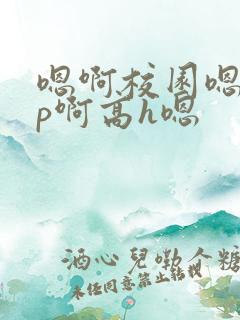 嗯啊校园嗯
p啊高h嗯
酒心兒嘞个糖
未经同意禁止转载